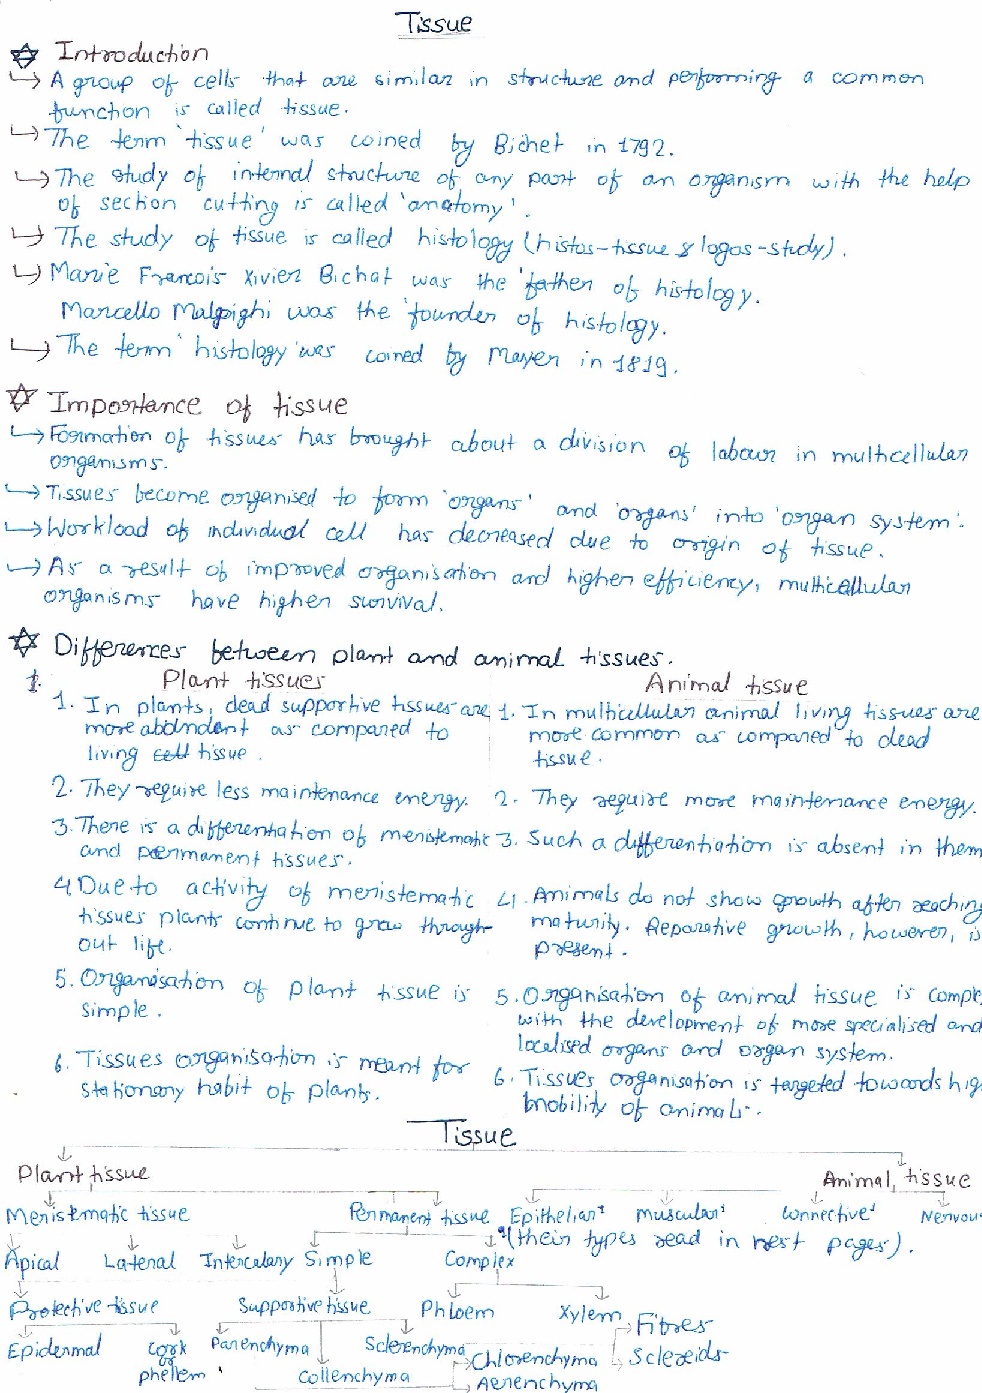 Tissue
Introduction
↳ A group of cells that are similar in structure and performing a common
function is called tissue.
↳ The term 'tissue' was coined by Bichet in 1792.
↳ The study of internal structure of any part of an organism with the help
of section cutting is called 'anatomy'.
↳ The study of tissue is called histology (histos-tissue & logos-study).
↳ Marie Francois Xivier Bichat was the 'father of histology.
Marcello Malpighi was the 'founder of histology.
↳ The term 'histology' was coined by Mayer in 1819.
Importance of tissue
↳ Formation of tissues has brought about a division of labour in multicellular
organisms.
↳ Tissues become organised to form 'organs' and 'organs' into 'organ system'.
↳ Workload of individual cell has decreased due to origin of tissue.
↳ As a result of improved organisation and higher efficiency, multicellular
organisms have higher survival.
Differences between plant and animal tissues.
Plant tissues
1. In plants, dead supportive tissues are
more abdndent as compared to
living cell tissue.
2. They require less maintenance energy.
3. There is a differentiation of meristematic
and permanent tissues.
4. Due to activity of meristematic
tissues plants continue to grow through-
out life.
5. Organisation of plant tissue is
simple.
6. Tissues organisation is meant for
stationary habit of plants.
Animal tissue
1. In multicellular animal living tissues are
more common as compared to dead
tissue.
2. They require more maintenance energy.
3. Such a differentiation is absent in them
4. Animals do not show growth after reaching
maturity. Reparative growth, however, is
present.
5. Organisation of animal tissue is comple
with the development of more specialised and
localised organs and organ system.
6. Tissues organisation is targeted towards hig
mobility of animals.
Tissue
Plant tissue Animal tissue
Meristematic tissue Permanent tissue Epithelian Muscular Connective Nervou
(their types read in next pages).
Apical Lateral Intercalary Simple Complex
Protective tissue Supportive tissue Phloem Xylem
Fibres
Epidermal Cork or phellem Parenchyma Sclerenchyma Sclereids
Chlorenchyma
Collenchyma Aerenchyma